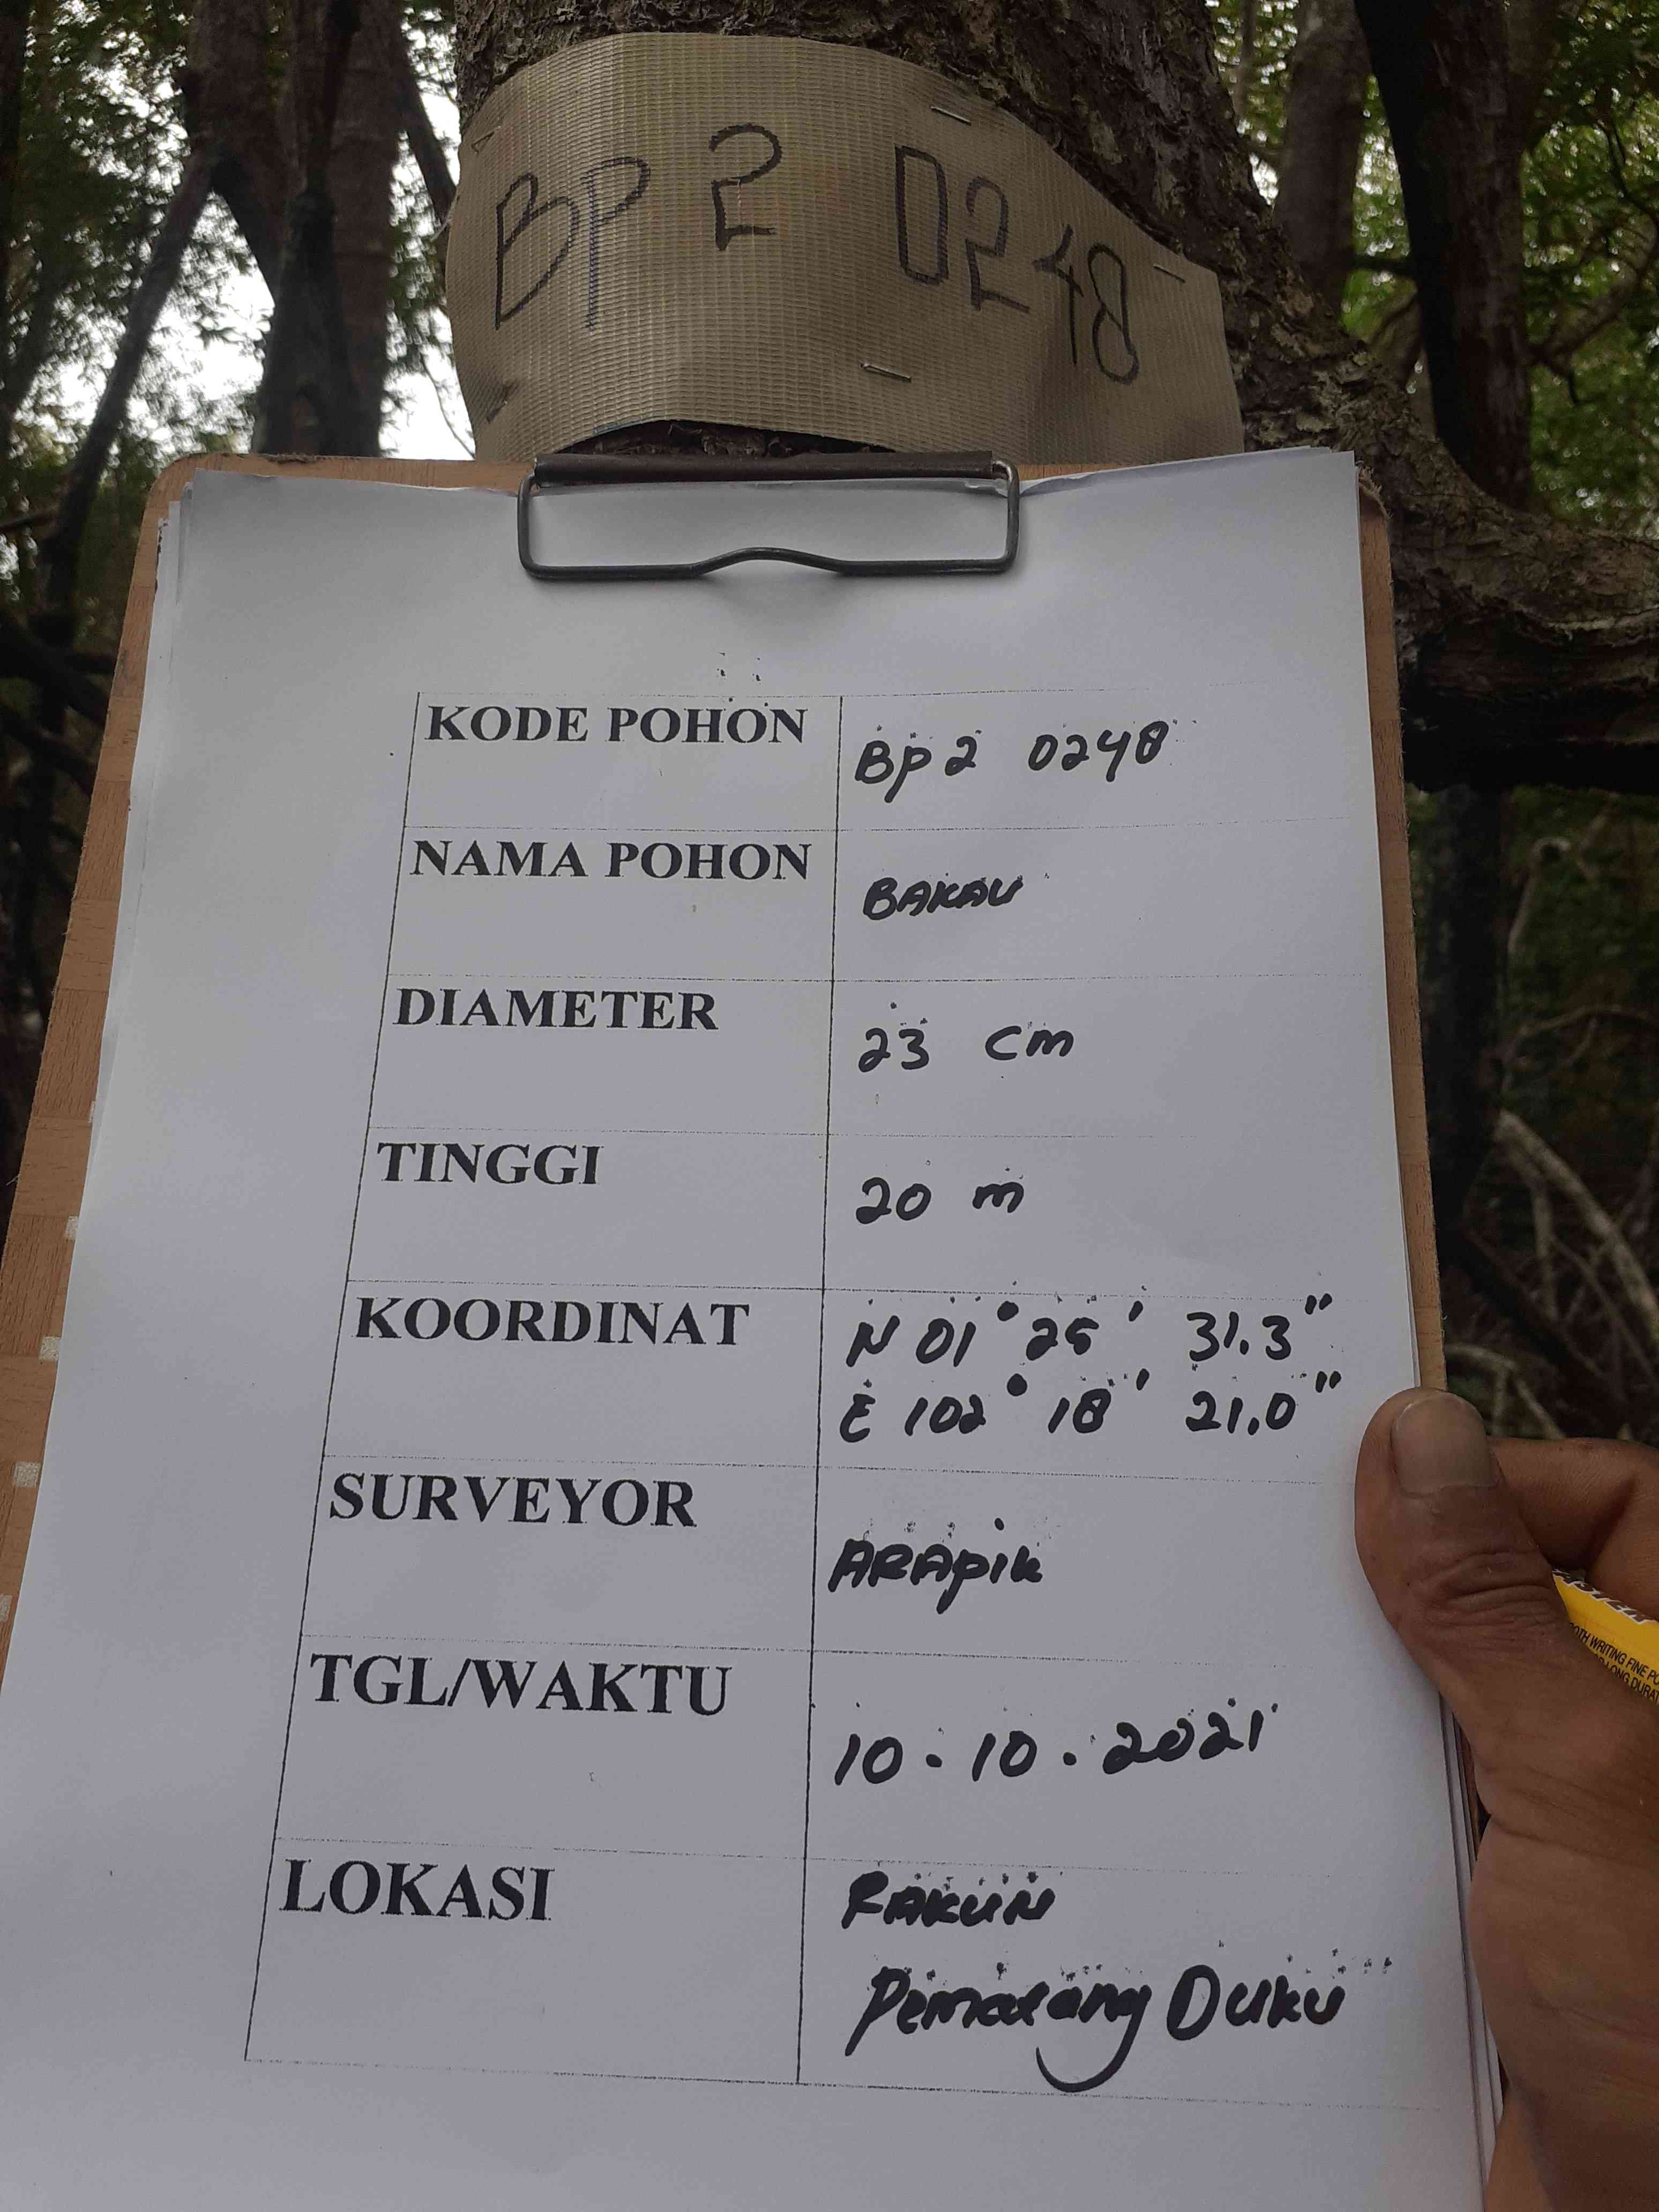 BP 2 0248
KODE POHON BP2 0248
NAMA POHON BAKAU
DIAMETER 23 cm
TINGGI 20 m
KOORDINAT N 01° 25' 31.3"
E 102° 18' 21.0"
SURVEYOR ARAPIK
TGL/WAKTU 10-10-2021
LOKASI RAKUN
Pematang Duku
WRITING FINE
LONG